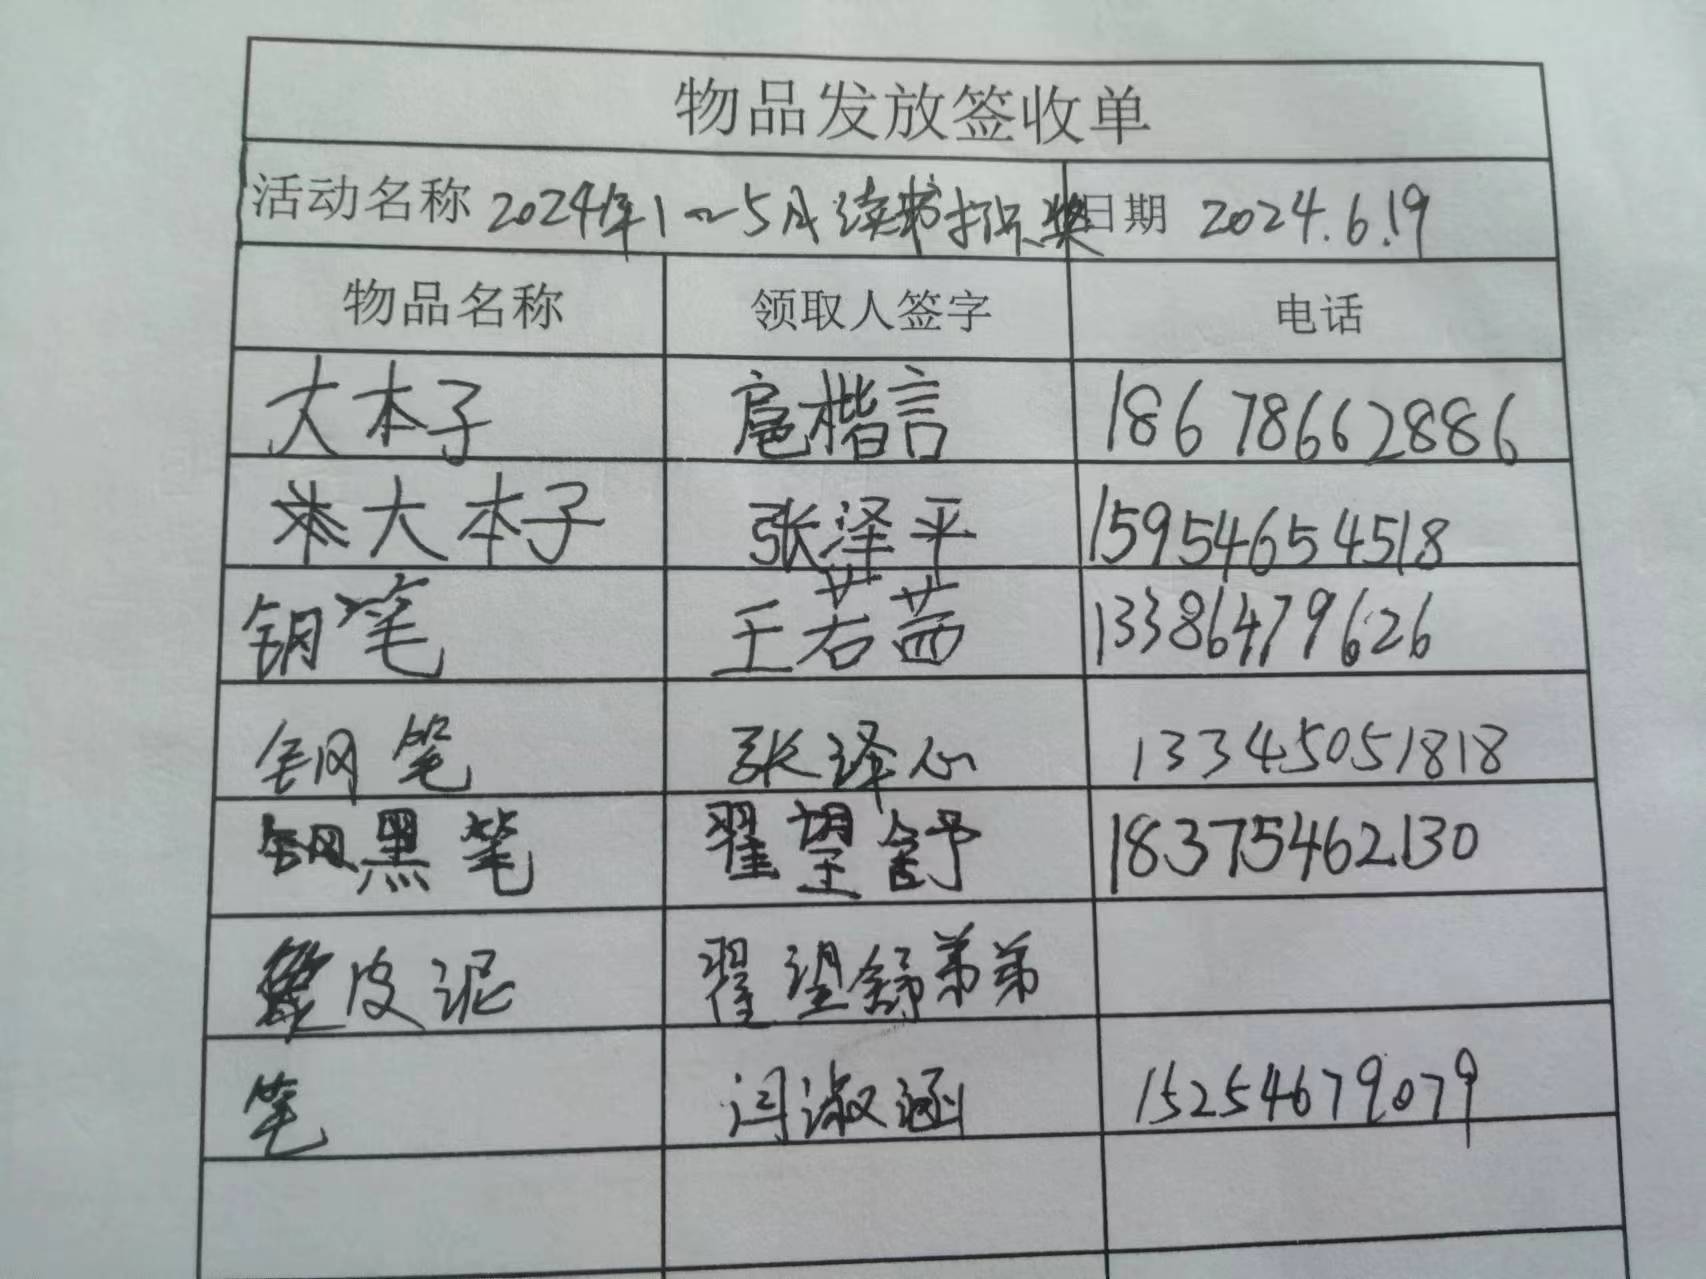 物品发放签收单
活动名称 2024年1~5月读书打卡奖 日期 2024.6.19
物品名称 领取人签字 电话
大本子 扈楷言 18678662886
大本子 张泽平 15954654518
钢笔 王若茜 13386479626
钢笔 张译心 13345051818
黑笔 翟望舒 18375462130
皮泥 翟望舒弟弟
笔 闫淑涵 15254679079